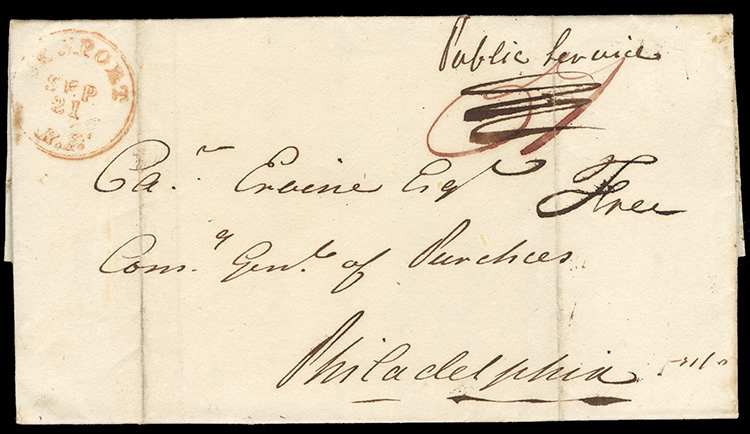 NEWPORT
SEP
21
K.Y.
Public Service
Ca.ʳ Ervine Esqʳ Free
Com.ʸ Genˡ. of Purchees
Philadelphia